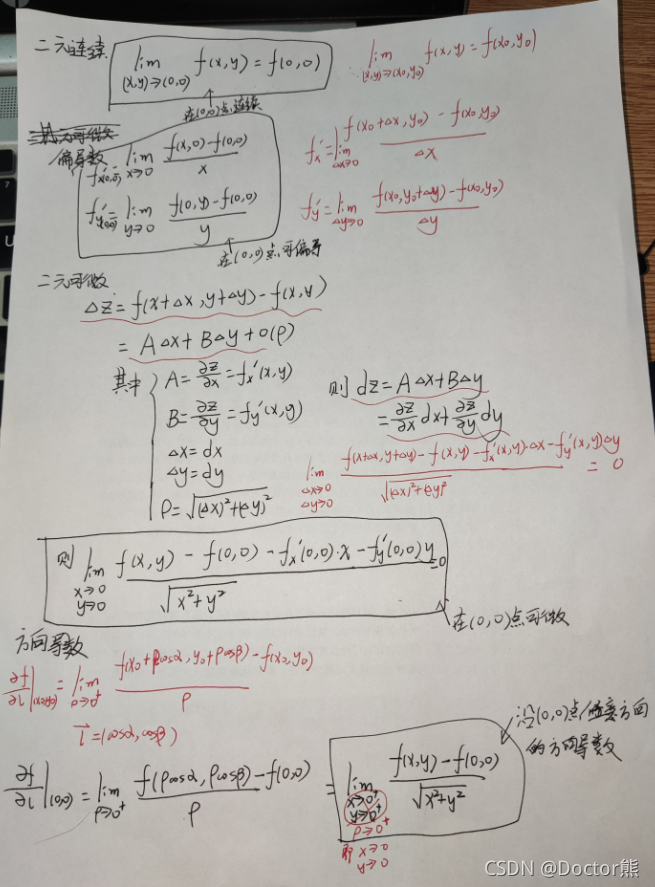 二元连续 lim (x,y)→(0,0) f(x,y) = f(0,0)
lim (x,y)→(x₀,y₀) f(x,y) = f(x₀,y₀)
在(0,0)点连续
偏导数
f'x(0,0) = lim x→0 (f(x,0) - f(0,0)) / x
f'x = lim Δx→0 (f(x₀+Δx, y₀) - f(x₀,y₀)) / Δx
f'y(0,0) = lim y→0 (f(0,y) - f(0,0)) / y
f'y = lim Δy→0 (f(x₀,y₀+Δy) - f(x₀,y₀)) / Δy
在(0,0)点可偏导
二元可微
Δz = f(x+Δx, y+Δy) - f(x,y)
= AΔx + BΔy + o(ρ)
其中 A = ∂z/∂x = fx'(x,y)
B = ∂z/∂y = fy'(x,y)
Δx = dx
Δy = dy
ρ = √((Δx)²+(Δy)²)
则 dz = AΔx + BΔy
= ∂z/∂x dx + ∂z/∂y dy
lim Δx→0 Δy→0 (f(x+Δx, y+Δy) - f(x,y) - fx'(x,y)·Δx - fy'(x,y)Δy) / √((Δx)²+(Δy)²) = 0
则 lim x→0 y→0 (f(x,y) - f(0,0) - fx'(0,0)·x - fy'(0,0)y) / √(x²+y²) = 0
在(0,0)点可微
方向导数
∂f/∂l |(x₀,y₀) = lim ρ→0⁺ (f(x₀+ρcosα, y₀+ρcosβ) - f(x₀,y₀)) / ρ
l = (cosα, cosβ)
沿(0,0)点任意方向
的方向导数
∂f/∂l |(0,0) = lim ρ→0⁺ (f(ρcosα, ρcosβ) - f(0,0)) / ρ
= lim x→0⁺ y→0⁺ (f(x,y) - f(0,0)) / √(x²+y²)
ρ→0⁺
即 x→0
y→0
CSDN @Doctor熊